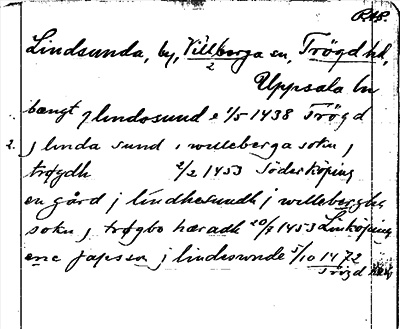 RAP.
Lindsunda, by, Villberga sn, Trögd hd,
2
Uppsala ln
bængt j lindosund 1/5 1438 Trögd
2. j linda sund i willeberga sokn j
trøgdh 2/2 1453 Söderköping
en gård j lindhesundh j willebergha
sokn j trøgbo hæradh 20/7 1453 Linköping
ene japssa j lindesunde 5/10 1472
Trögd